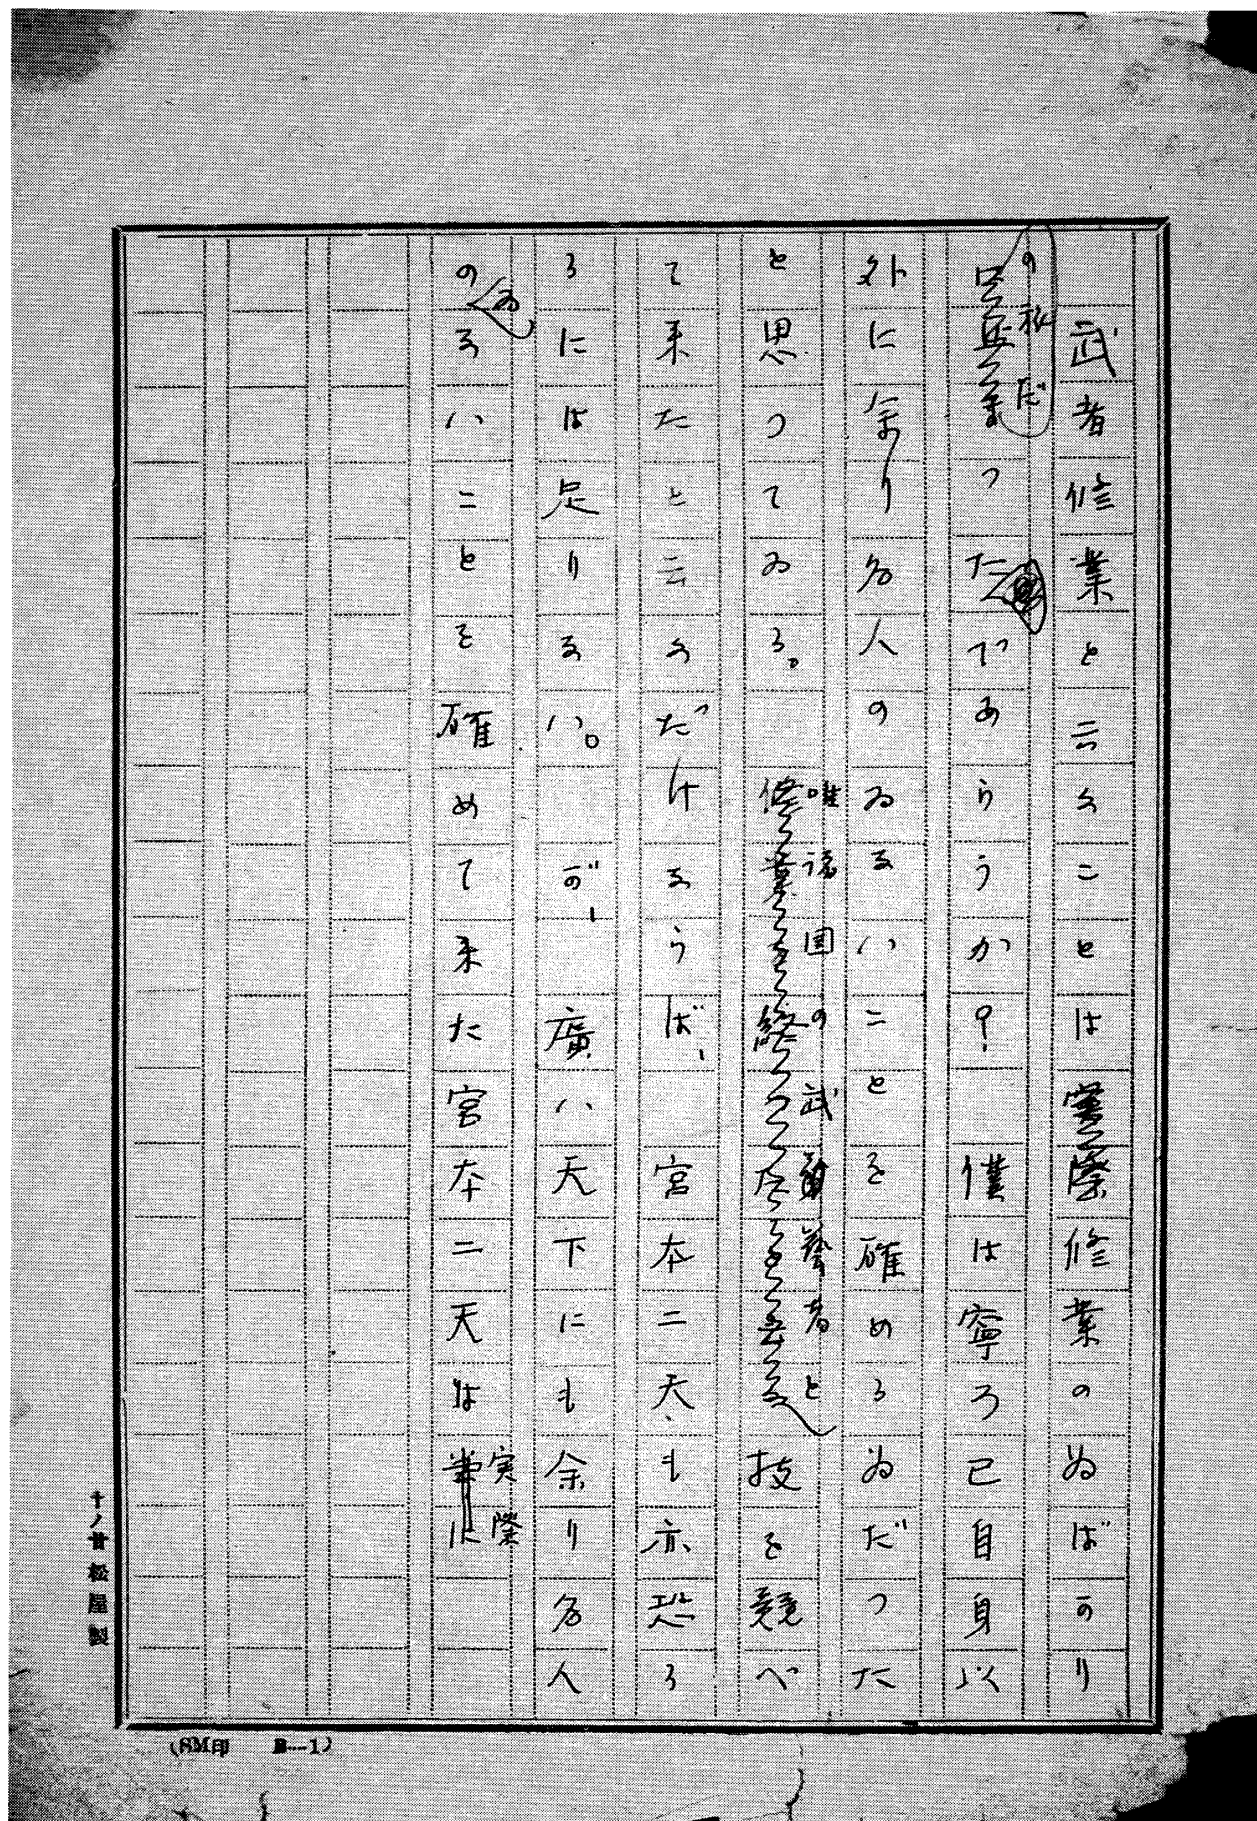 武者修業と云ふことは修業の為ばかり
の旅だつたであらうか? 僕は寧ろ己自身以
外に余り名人のゐないことを確める為だつた
と思つてゐる。 唯諸国の武藝者と技を競べ
て来たと云ふだけならば、 宮本二天も亦恐る
るには足りない。 が、 廣い天下にも余り名人
のゐないことを確めて来た宮本二天は実際
十ノ廿 松屋製
(SM印 B—1)